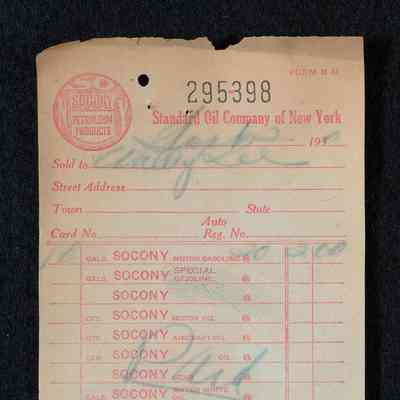 FORM B M
SOCONY
PETROLEUM
PRODUCTS
295398
Standard Oil Company of New York
Sept 193
Sold to
Street Address
Town State
Auto
Card No. Reg. No.
10 GALS. SOCONY MOTOR GASOLINE @ 20 2 00
GALS. SOCONY SPECIAL GASOLINE @
SOCONY
QTS. SOCONY MOTOR OIL @
QTS. SOCONY AIRCRAFT OIL @
SOCONY OIL @
SOCONY @
SOCONY MOTOR WHITE @
Paid